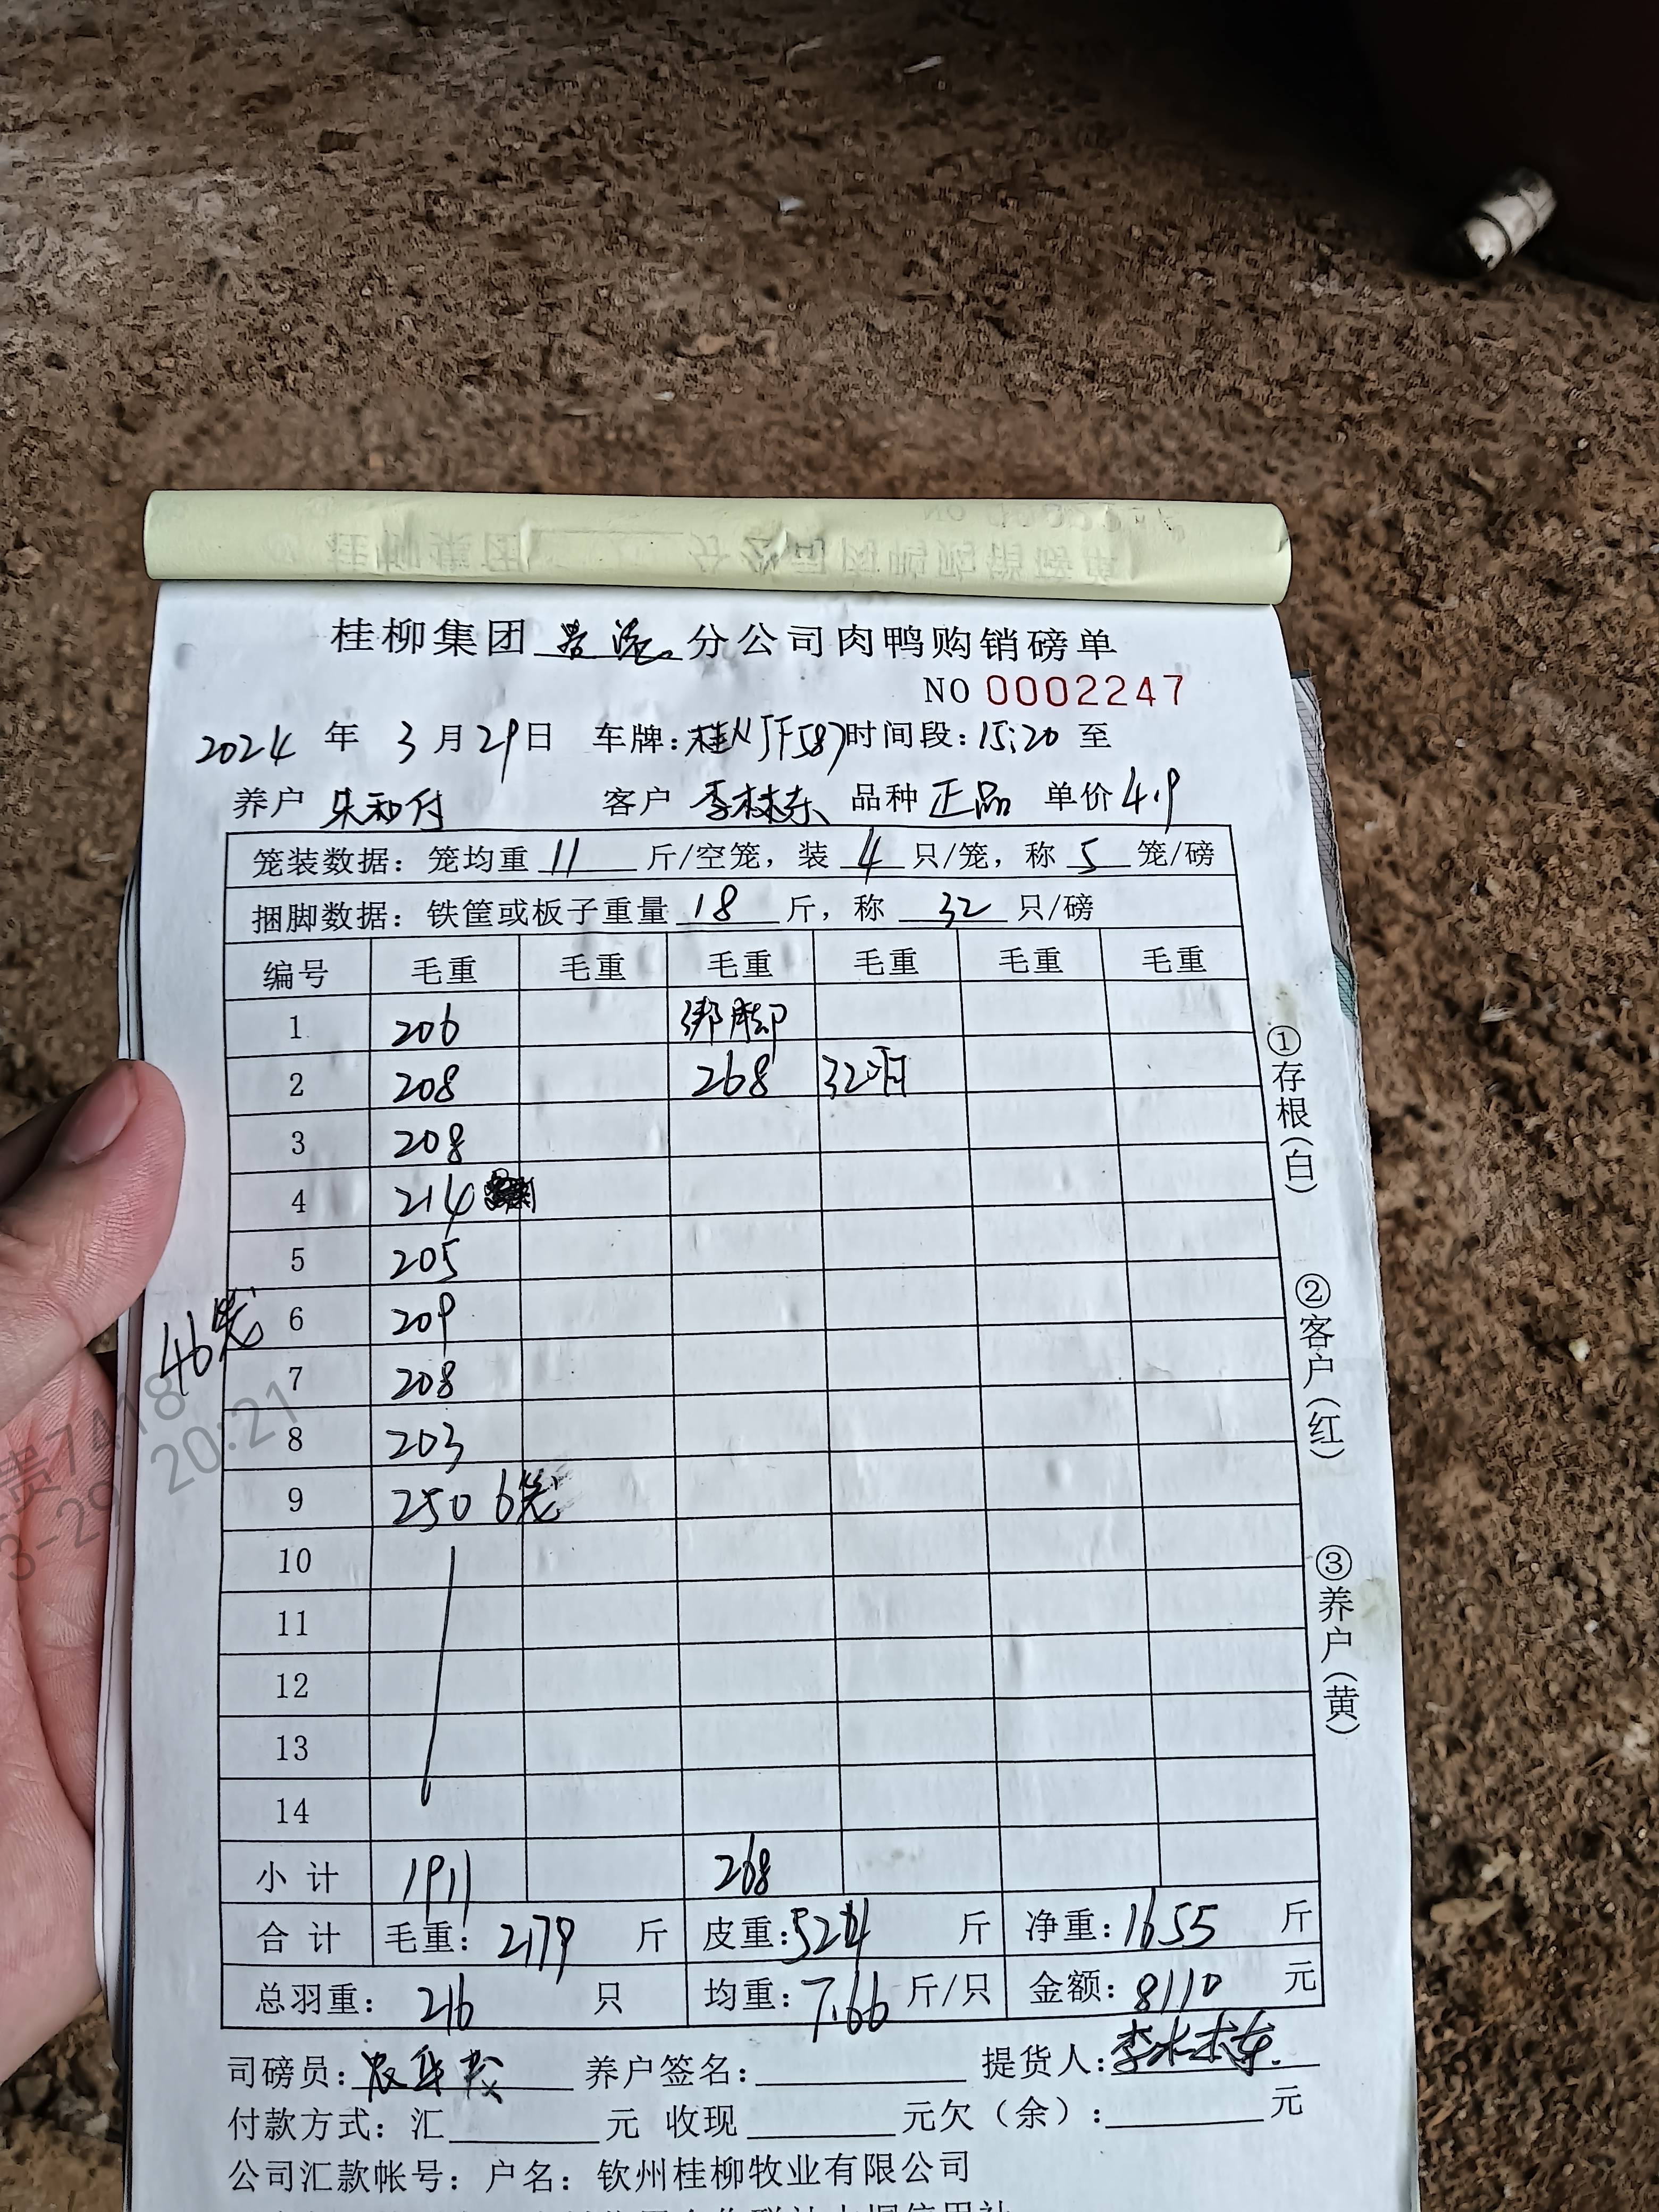 桂柳集团贵港分公司肉鸭购销磅单
NO 0002247
2024 年 3 月 29 日 车牌:桂NJF587 时间段:15:20 至
养户 朱和付 客户 李林东 品种 正品 单价 4.9
笼装数据:笼均重 11 斤/空笼,装 4 只/笼,称 5 笼/磅
捆脚数据:铁筐或板子重量 18 斤,称 32 只/磅
编号 毛重 毛重 毛重 毛重 毛重 毛重
1 206 绑脚
2 208 268 32只
3 208
4 214
5 205
6 209
7 208
8 203
9 250 6笼
10
11
12
13
14
小计 1911 268
合计 毛重:2179 斤 皮重:524 斤 净重:1655 斤
总羽重:216 只 均重:7.66 斤/只 金额:8110 元
司磅员: 养户签名: 提货人:李林东
付款方式:汇 元 收现 元欠(余): 元
公司汇款帐号:户名:钦州桂柳牧业有限公司
①存根(白)
②客户(红)
③养户(黄)
46笼
贵7418
3-29 20:21